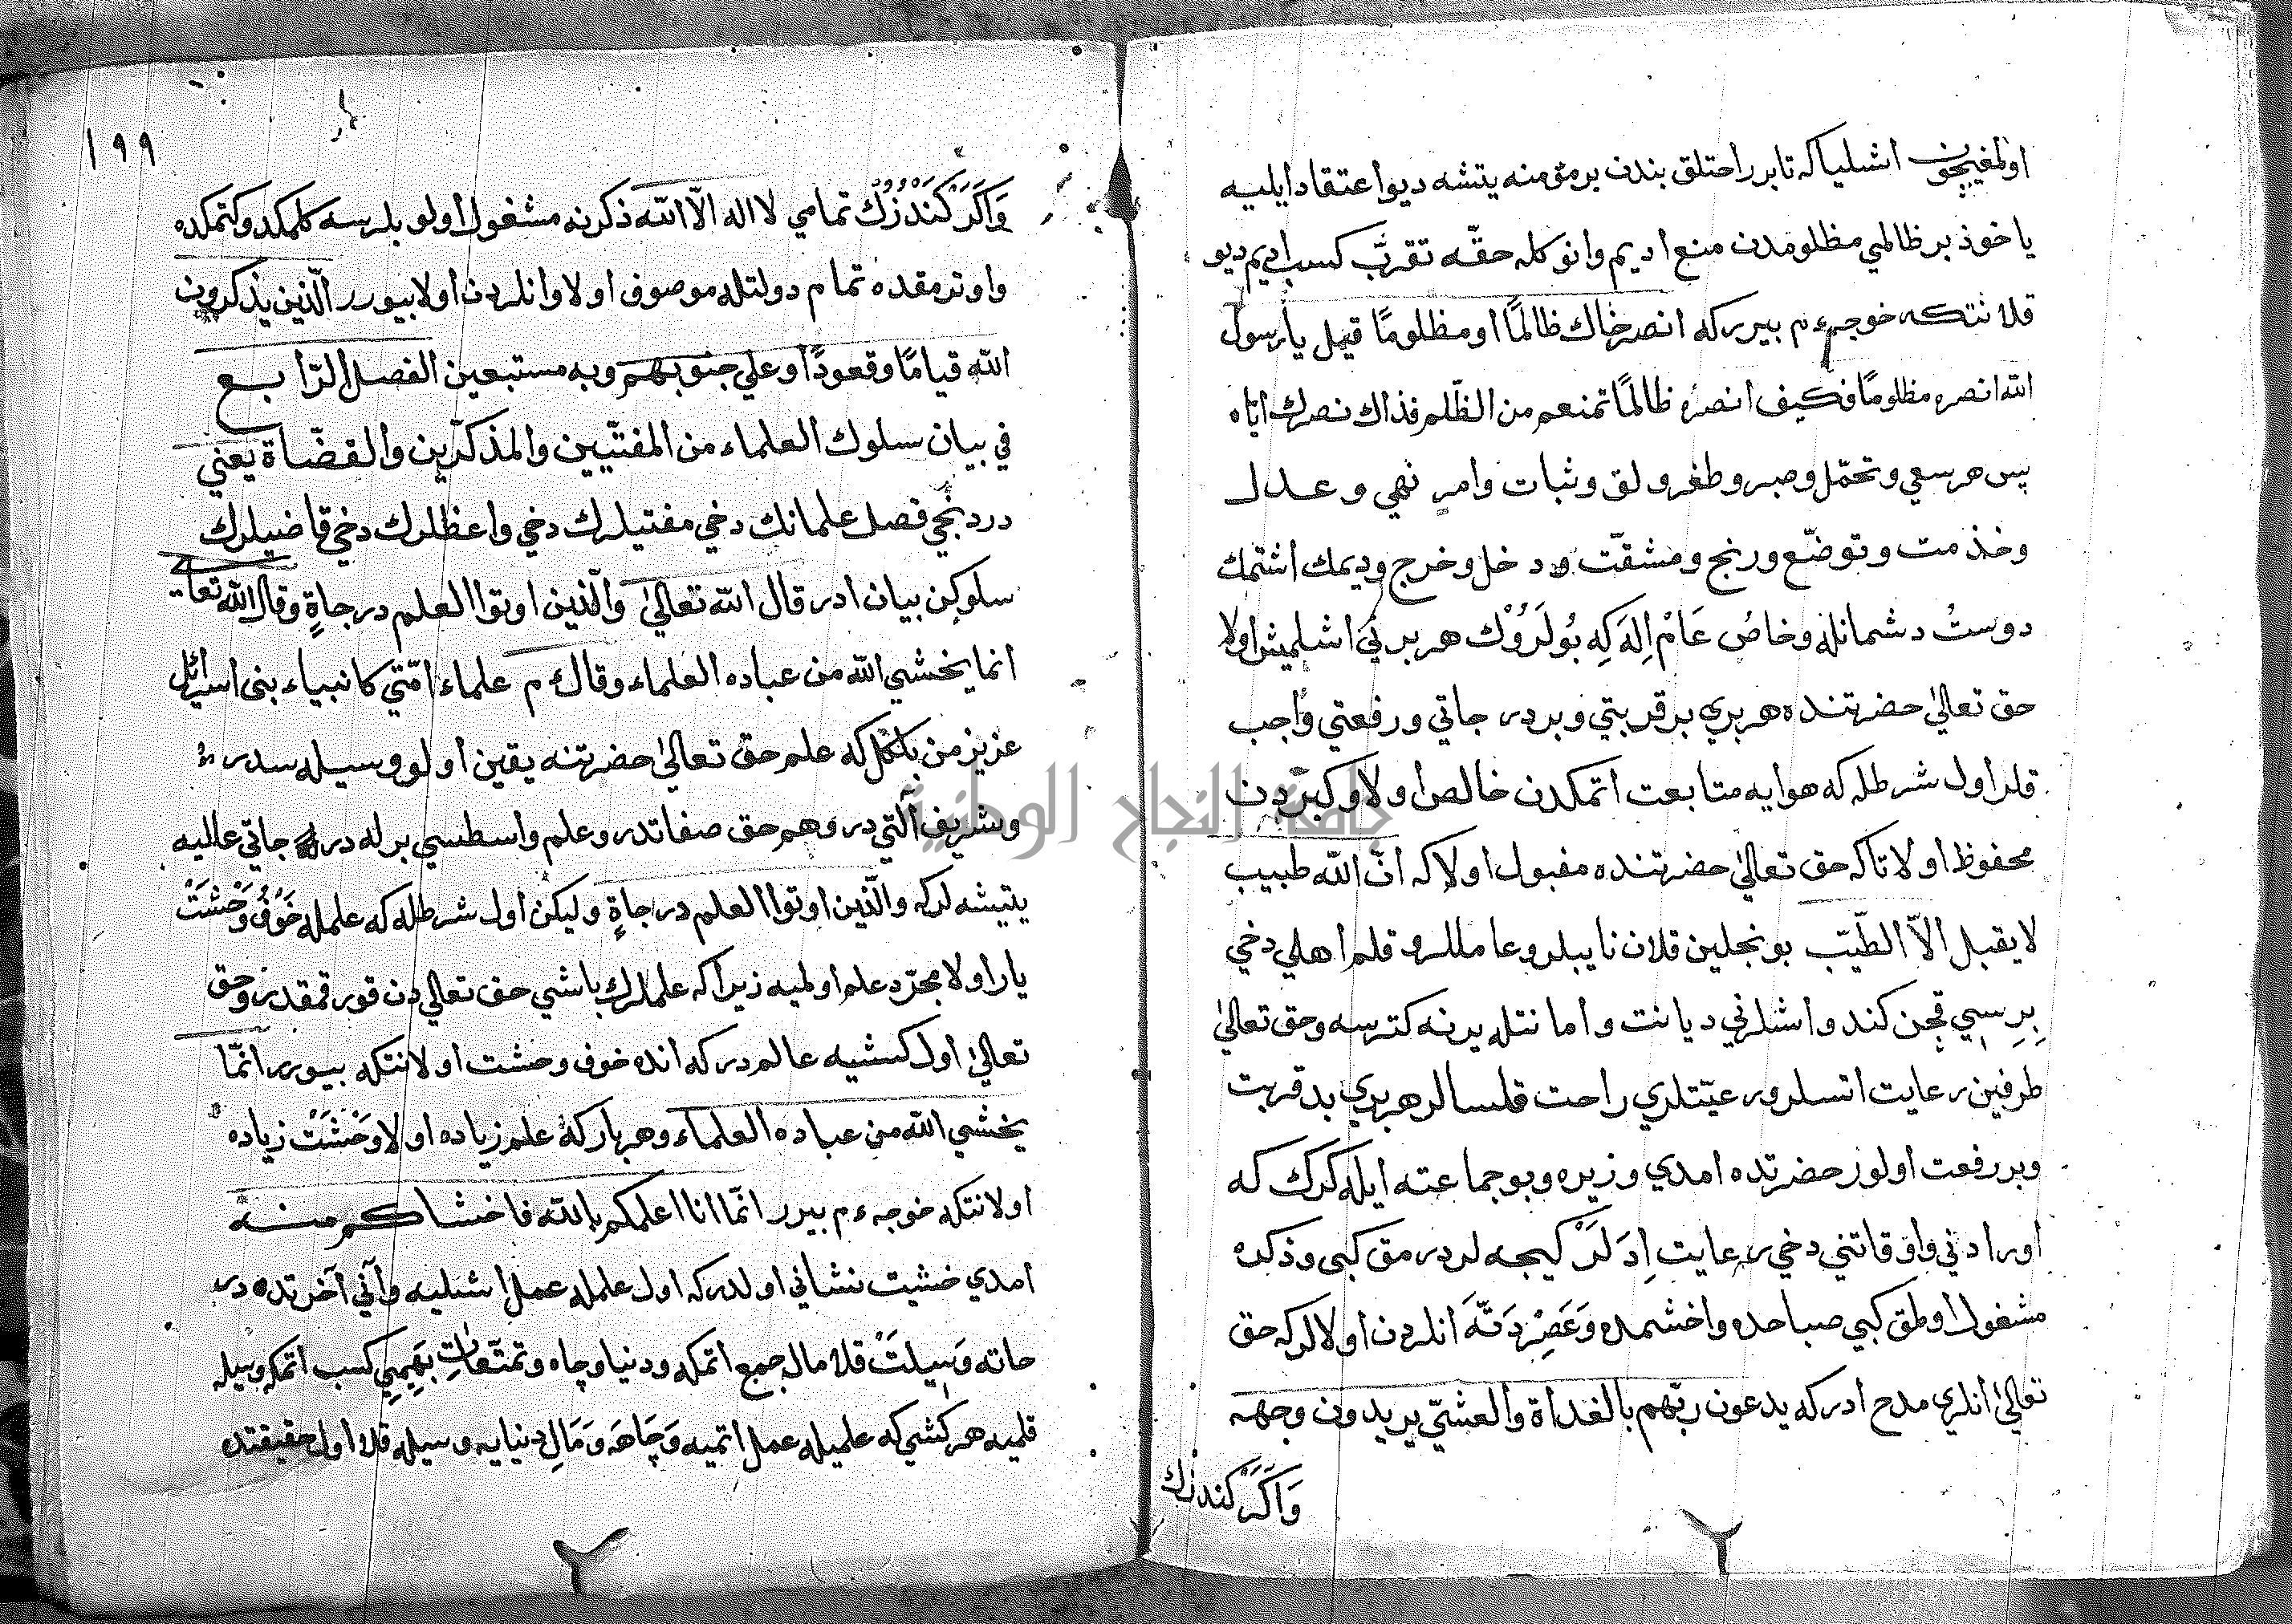 اولمغيچون اشليا كه تا بر راحتلق بندن بر مؤمنه يتشه ديو اعتقاد ايليه
يا خوذ بر ظالمي مظلومدن منع اديم وانوكله حقّه تقرّب كسب اديم ديو
قلا نتكه خوجه م بيرر كه انصر خاك ظالمًا او مظلومًا قيل يا رسول
الله انصره مظلومًا فكيف انصره ظالمًا تمنعه من الظّلم فذاك نصرك ايّاه
پس هر سعي وتحمّل وصبر و طغرولق وثبات وامر نهي وعدل
وخذمت وتوضّع ورنج ومشقّت و دخل وخرج وديمك اشتمك
دوستْ دشمانله وخاصْ عَامْ اِلَه كِه بُولَرُوْك هر برني اشلميش اولا
حق تعالىٰ حضرتنده هر بري بر قربتي وبر درجاتي ورفعتي واجب
قلر اول شرطله كه هوايه متابعت اتمكدن خالص اولا وكبردن
محفوظ اولا تا كه حق تعالىٰ حضرتنده مقبول اولا كه انّ الله طيب
لا يقبل الاّ الطّيّب بونجلين قلان نايبلر وعامللر و قلم اهلي دخي
بِرِسِي قچن كندو اشلرني ديانت وامانتله يرنه كترسه وحق تعالىٰ
طرفين رعايت اتسلر ورعيّتلري راحت قلسالر هر بري بد قربت
وبر رفعت اولوز حضرتده امدي وزيره وبو جماعته ايله كرك كه
اورادني واوقاتني دخي رعايت اِدَلَرْ كيجه لر درمق كبي وذكره
مشغول اولمق كبي صباحده واخشمده وَعَصِرْدَنّهَ انلردن اولالر كه حق
تعالىٰ انلري مدح ادر كه يدعون ربّهم بالغداة والعشيّ يريدون وجهه
وَاَكَرْ كندزك
١٩٩
وَاَكَرْ كَنْدَزُك تمامي لا اله الاّ الله ذكرنه مشغول اولو بلرسه كلمكد وكتمكده
واوترمقده تمام دولتله موصوف اولا وانلردن اولا بيورر الّذين يذكرون
الله قيامًا وقعودًا وعلي جنوبهم وبه مستبعين الفصل الرّابع
في بيان سلوك العلماء من المفتيين والمذكّرين والقضاة يعني
دردنجي فصل علمانك دخي مفتيلرك دخي واعظلرك دخي قاضيلرك
سلوكن بيان ادر قال الله تعالىٰ والّذين اوتوا العلم درجاةٍ وقال الله تعالى
انما يخشي الله من عباده العلماء وقال م علماء امّتي كانبياء بنى اسرائل
عزيز من بلكل كه علم حق تعالىٰ حضرتنه يقين اولو وسيله سدر
وشريف آلتي در وهم حق صفاتدر وعلم واسطسي برله درجاتي عاليه
يتيشه لركه والّذين اوتوا العلم درجاةٍ وليكن اول شرطله كه علمله خَوْفُ وَحْشَتْ
يار اولا مجرّد علم اولميه زيرا كه علملرك باشي حق تعالىٰ دن قورقمقدر وحق
تعالىٰ اول كشيه عالم در كه انده خوف وخشت اولا نتكه بيورر انّما
يخشي الله من عباده العلماء وهر بار كه علم زياده اولا وَخْشَتْ زياده
اولا نتكه خوجه م بيرر انّما انا اعلمكم بالله فاخشاكم منه
امدي خشيت نشاني اولدر كه اول علمله عمل اشليه وآني آخرتده در
حاته وَسِيلَتْ قلا مال جمع اتمكه و دنيا وجاه وتمتّعاتِ بَهِيمِيِ كسب اتمكه وسيله
قلميه هر كشي كه علميله عمل اتميه وَجَاهَه وَمَالِ دنيايه وسيله قلا اول حقيقتده